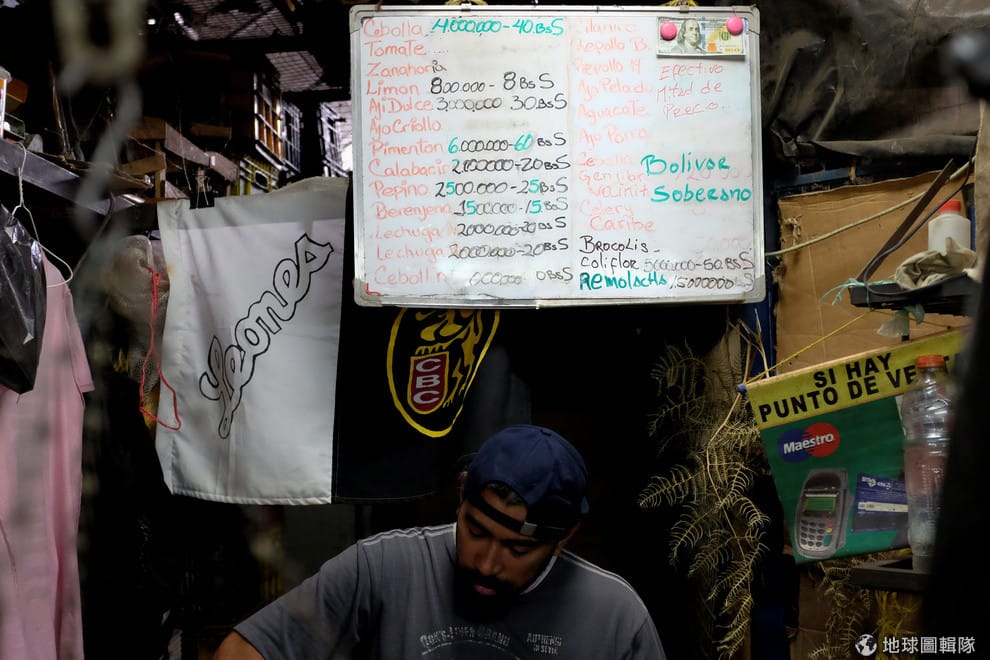 Cebolla 4.000.000-40BsS
Tomate....
Zanahoria
Limon 800.000- 8BsS
AjiDulce 3000.000 30BsS
AjoCriollo
Pimenton 6.000.000-60BsS
Calabacin 2.000000-20BsS
Pepino 2500.000-25BsS
Berenjena 1500.000-15BsS
Lechuga 2000000-20BsS
Lechuga 2000000-20BsS
Cebollin 000000 0BsS
Cilantro
Repollo B.
Repollo M
Ajo Pelado
Aguacate
Ajo Porro
Celery
Caribe
Efectivo
Mitad de
Precio..
Bolivar
Soberano
BROCOLIS-
Coliflor 5000000-50.BsS
Remolacha 1500000
Leones
CBC
SI HAY
PUNTO DE
Maestro
地球圖輯隊